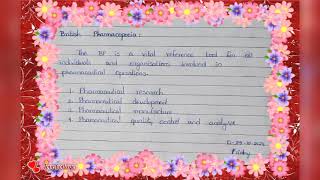 British Pharmacopoeia:
The BP is a vital reference tool for all
individuals and organisations involved in
pharmaceutical operations.
1. Pharmaceutical research
2. Pharmaceutical development
3. Pharmaceutical manufacture
4. Pharmaceutical quality control and analysis